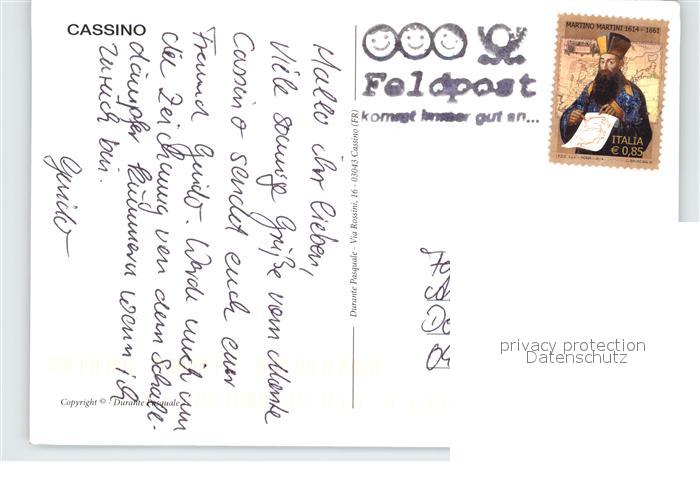 CASSINO
Hallo ihr Lieben,
Viele sonnige Grüße vom Monte
Cassino sendet euch euer
Freund Guido. Werde mich um
die Zeichnung von dem Schaufel-
dampfer kümmern wenn ich
zurück bin.
Guido
Copyright © - Durante Pasquale
Durante Pasquale - Via Rossini, 16 - 03043 Cassino (FR)
Feldpost
kommt immer gut an...
MARTINO MARTINI 1614 - 1661
ITALIA
€ 0,85
privacy protection
Datenschutz